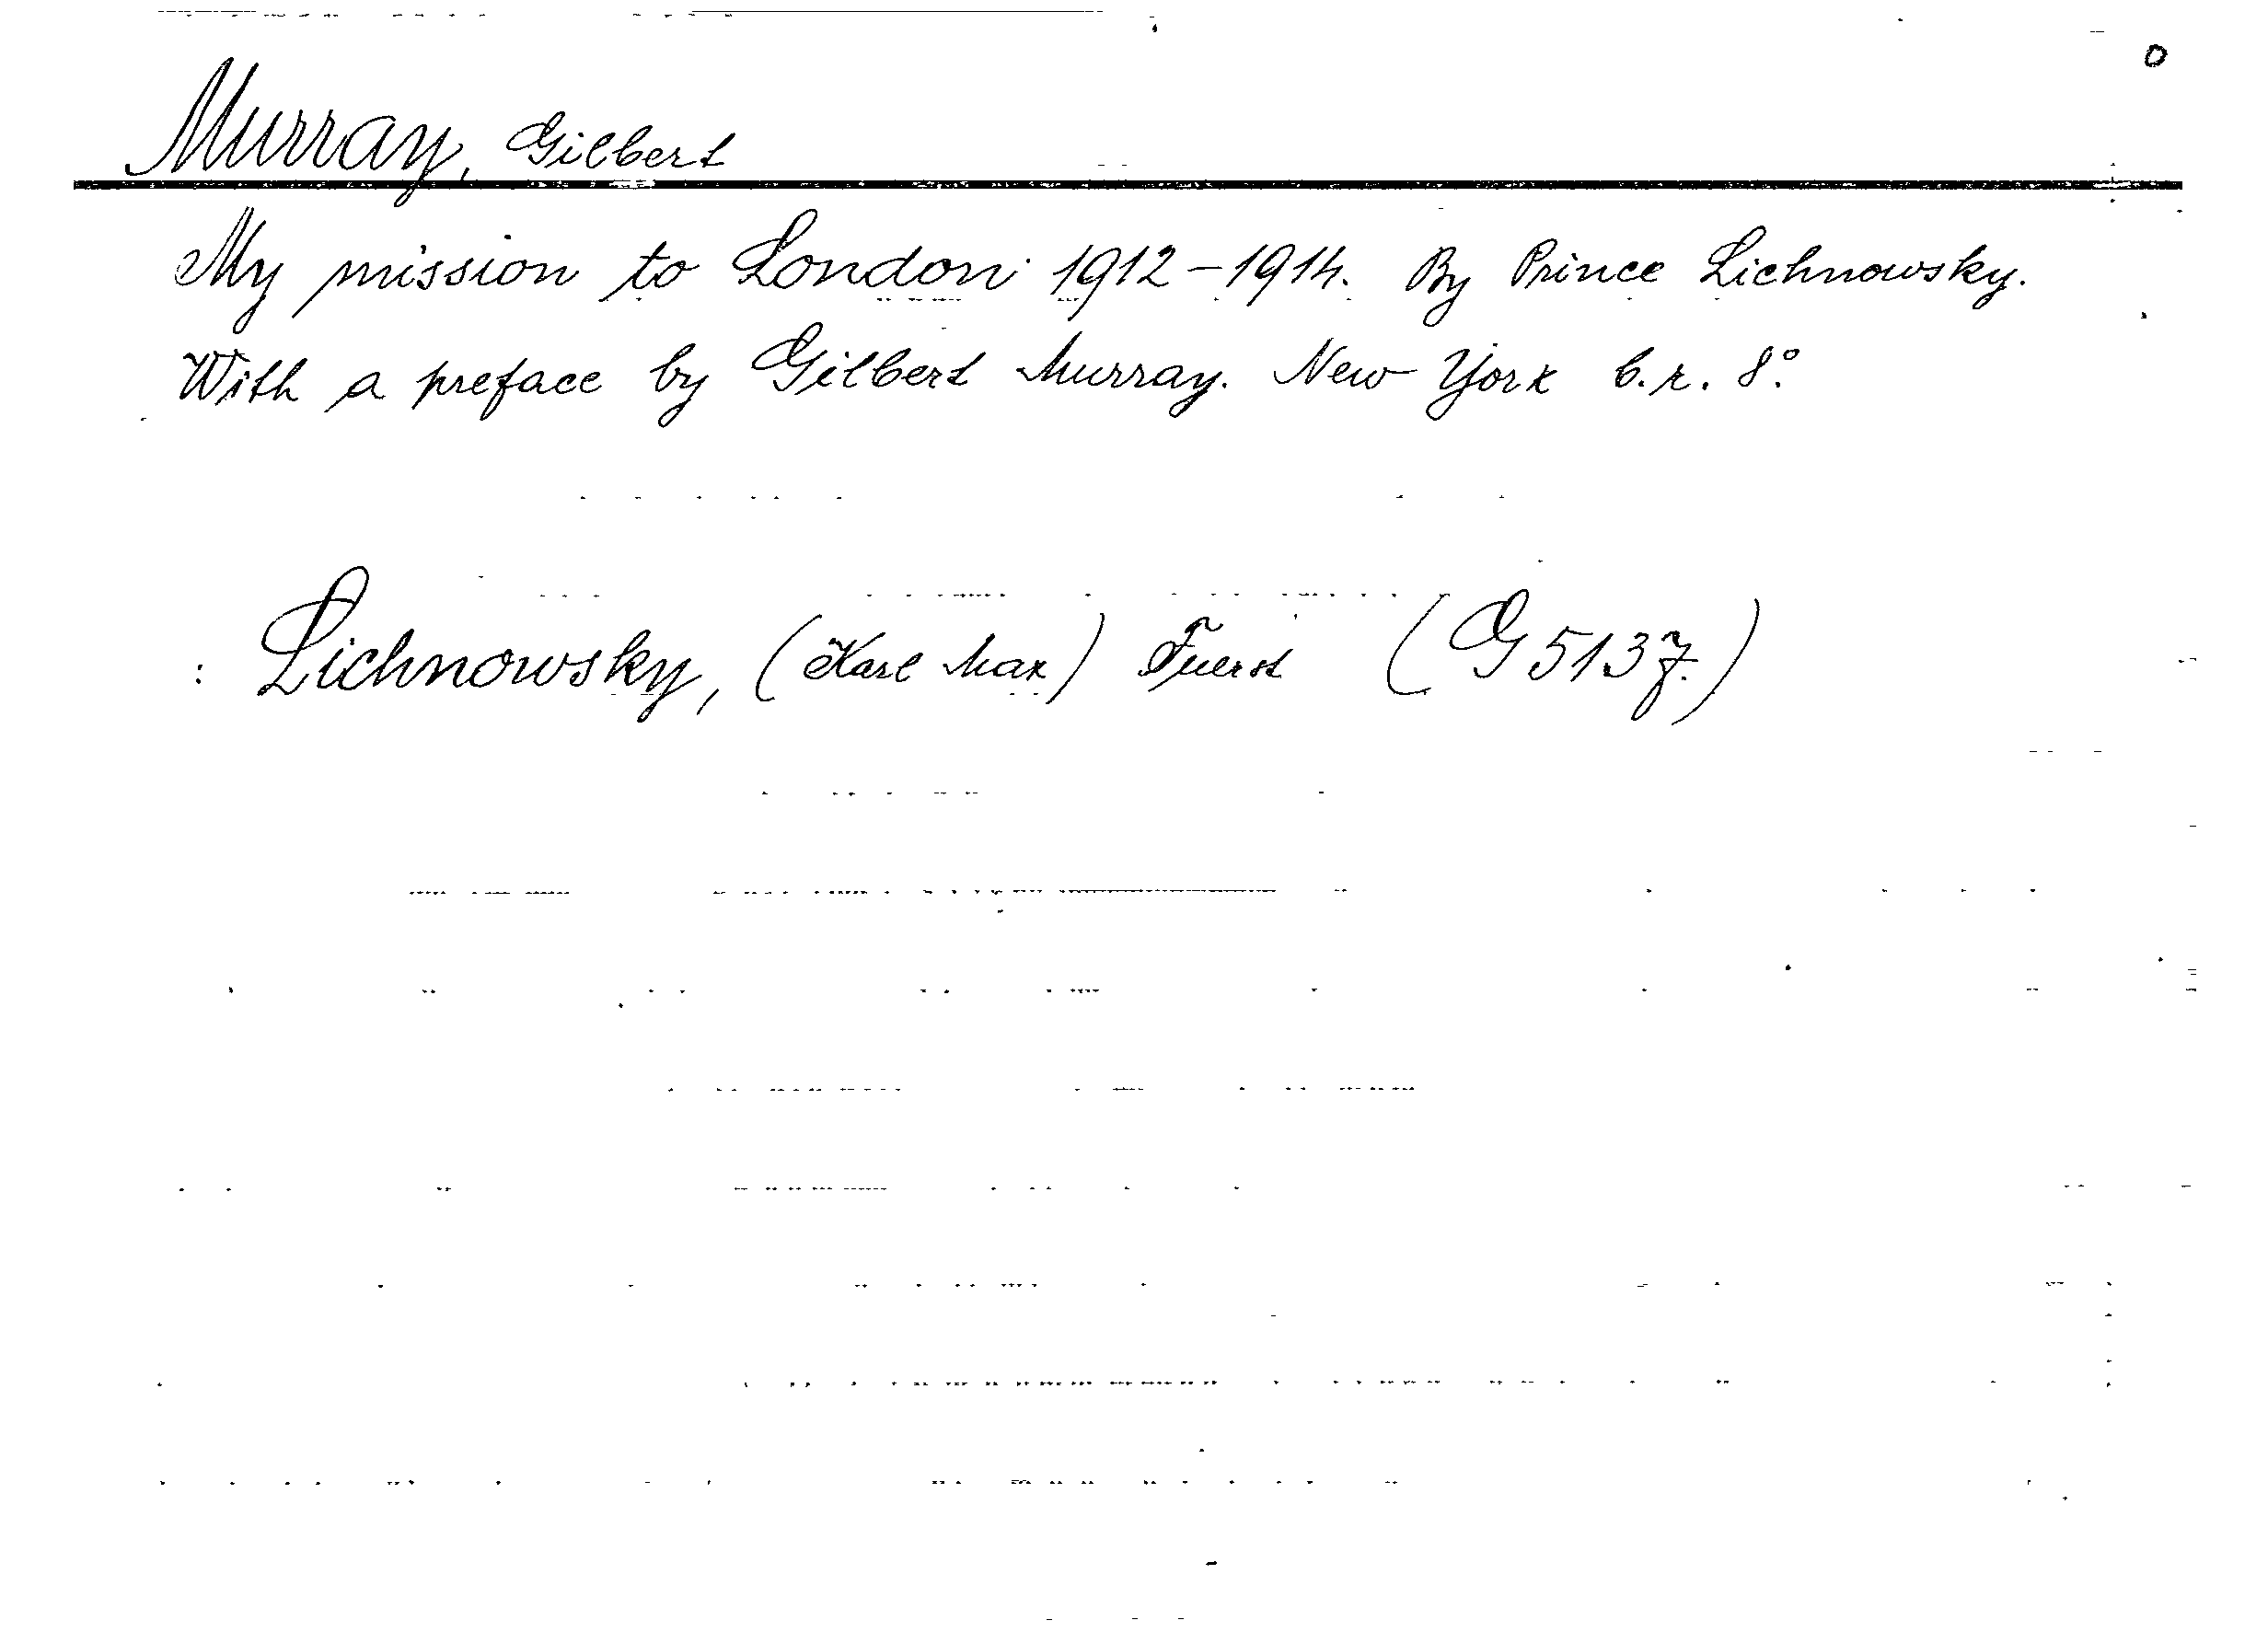 o
Murray, Gilbert
My mission to London 1912-1914. By Prince Lichnowsky.
With a preface by Gilbert Murray. New York b.r. 8°.
: Lichnowsky, (Karl Max) Fuerst (G 5137.)